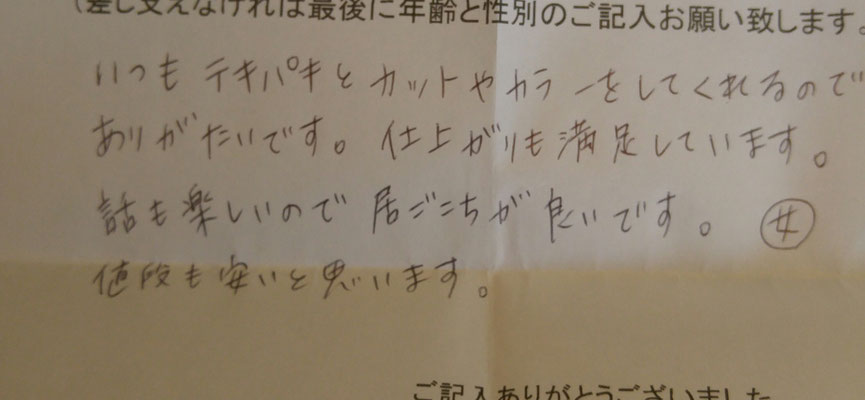 (差し支えなければ最後に年齢と性別のご記入お願い致します。
いつもテキパキとカットやカラーをしてくれるので
ありがたいです。仕上がりも満足しています。
話も楽しいので居ごこちが良いです。 女
値段も安いと思います。
ご記入ありがとうございました